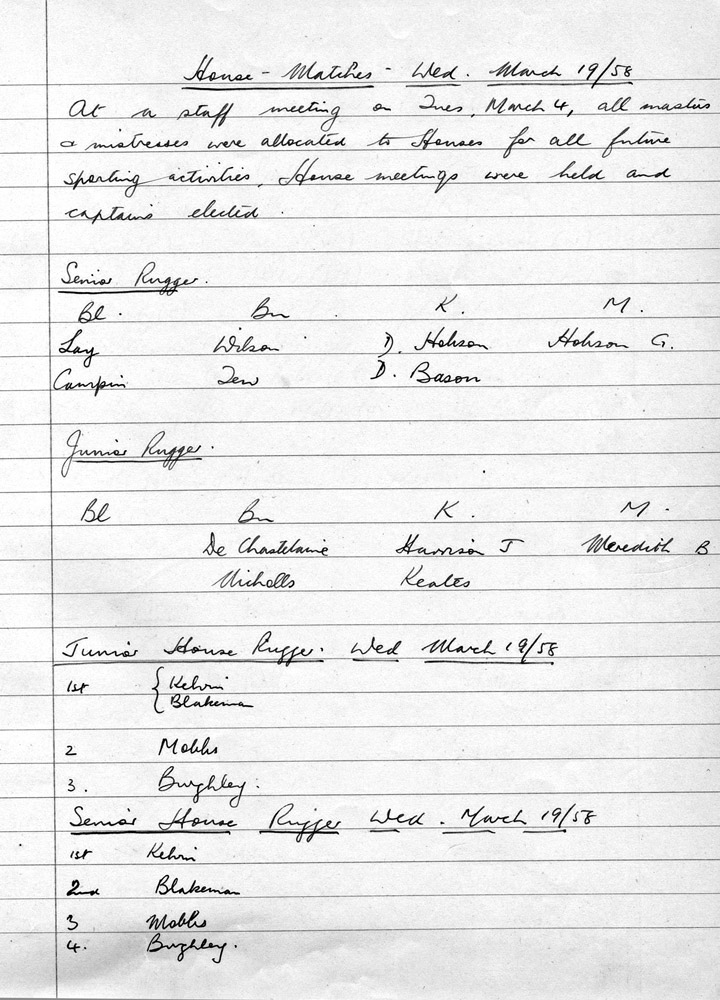 House - Matches - Wed. March 19/58
At a staff meeting on Tues, March 4, all masters
& mistresses were allocated to Houses for all future
sporting activities, House meetings were held and
captains elected.
Senior Rugger.
Bl. Bu K. M.
Lay Wilson D. Hobson Hobson G.
Campin Tew D. Bason
Junior Rugger.
Bl Bu K. M.
De Chastelaine Harrison J Meredith B
Nicholls Keates
Junior House Rugger. Wed March 19/58
1st { Kelvin
Blakeman
2 Mobbs
3. Burghley.
Senior House Rugger Wed. March 19/58
1st Kelvin
2nd Blakeman
3 Mobbs
4. Burghley.